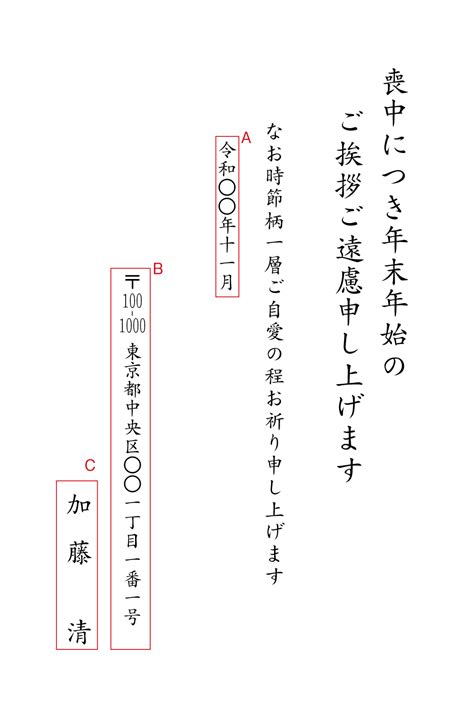 喪中につき年末年始の
ご挨拶ご遠慮申し上げます
なお時節柄一層ご自愛の程お祈り申し上げます
A
令和〇〇年十一月
B
〒100-1000 東京都中央区〇〇一丁目一番一号
C
加藤 清